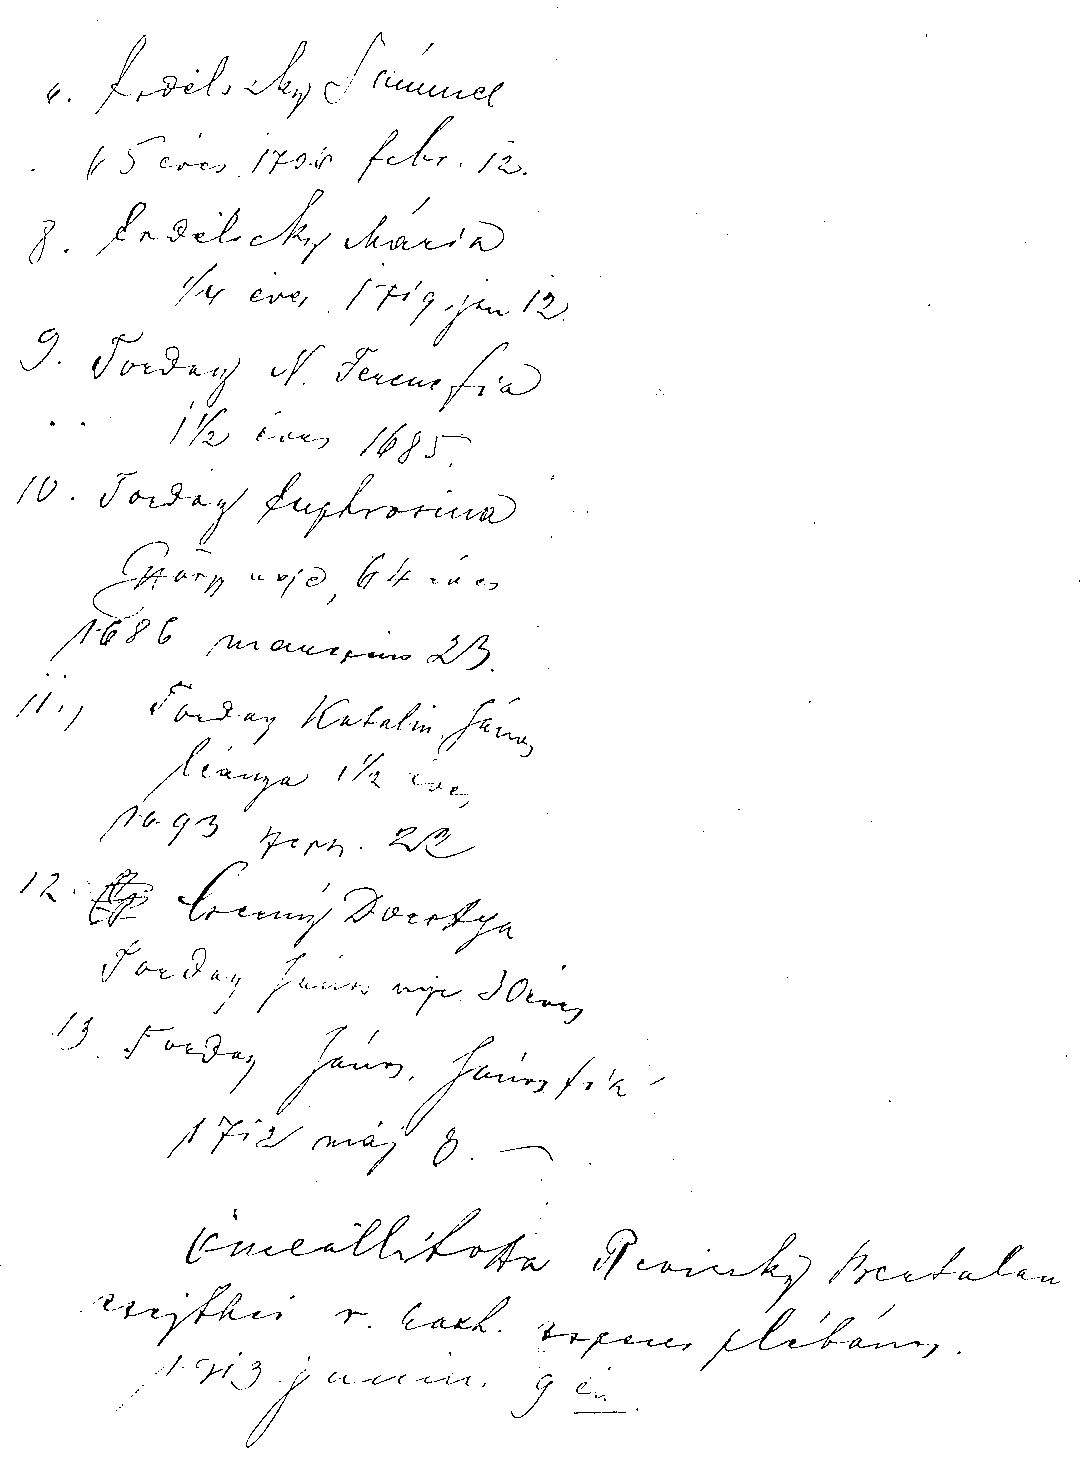 Erdélszky Sámuel
65 éves 1708 febr. 12.
8. Erdélszky Mária
1/4 éves 1719 jan 12.
9. Torday N. Ferenc fia
1 1/2 éves 1685.
10. Torday Euphrosina
neje, 64 éves
1686 marczius 23.
11., Torday Katalin, János
leánya 1 1/2 éves,
1693 szept. 22
12. Dorottya
Torday János neje 30 éves
13. Torday János, János fia
1712 máj 8. —
összeállította Reviczky Bertalan
r. kath. esperes plébános.
1913 junius. 9 én.